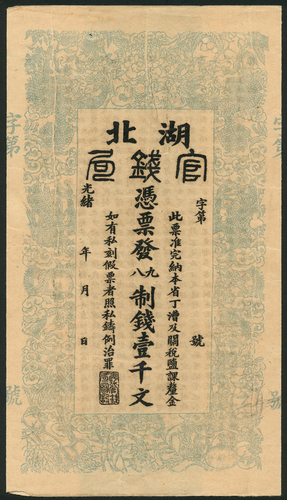 湖北
官錢局
字第　　號
此票准完納本省丁漕及關稅鹽課釐金
憑票發九八制錢壹千文
如有私刻假票者照私鑄例治罪
光緒　年　月　日
字第
號
字第
號